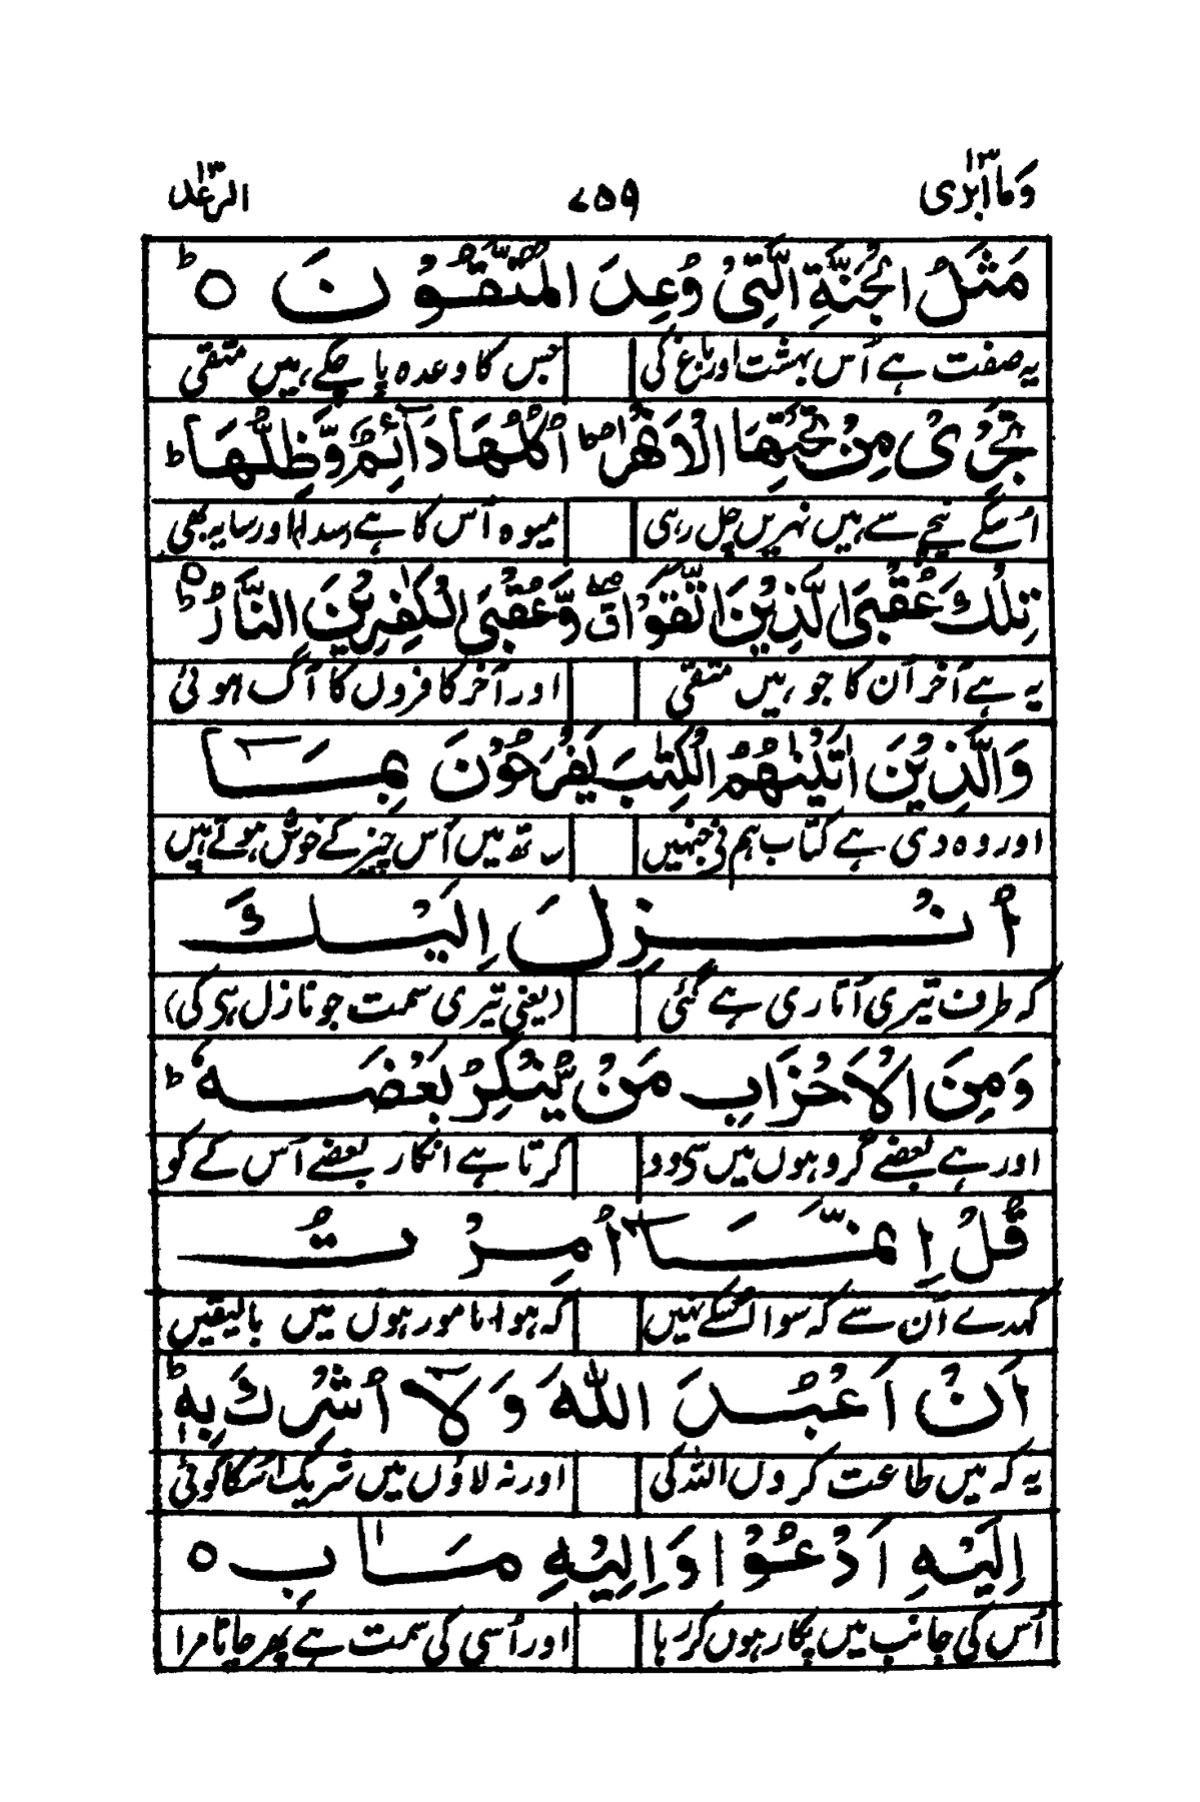 وَمَا اُبَرِّی ۱۳ ۷۵۹ الرّعد ۱۳
مَثَلُ الْجَنَّةِ الَّتِیْ وُعِدَ الْمُتَّقُوْنَ ○ ط
یہ صفت ہے اُس بہشت اور باغ کی جس کا وعدہ پا چکے ہیں متقی
تَجْرِیْ مِنْ تَحْتِهَا الْاَنْهٰرُ ط اُكُلُهَا دَآئِمٌ وَّظِلُّهَا ط
اُسکے نیچے سے ہیں نہریں چل رہی میوہ اُس کا ہے (سدا) اور سایہ بھی
تِلْكَ عُقْبَی الَّذِیْنَ اتَّقَوْا ق وَّعُقْبَی الْكٰفِرِیْنَ النَّارُ ○
یہ ہے آخر اُن کا جو ہیں متقی اور آخر کافروں کا آگ ہوئی
وَالَّذِیْنَ اٰتَیْنٰهُمُ الْكِتٰبَ یَفْرَحُوْنَ بِمَآ
اور وہ دی ہے کتاب ہم نے جنہیں ساتھ میں اُس چیز کے خوش ہوتے ہیں
اُنْزِلَ اِلَیْكَ
کہ طرف تیری اُتاری ہے گئی (یعنی تیری سمت جو نازل ہوئی)
وَمِنَ الْاَحْزَابِ مَنْ یُّنْكِرُ بَعْضَهٗ ط
اور ہے بعضے گروہوں میں سے وہ کرتا ہے انکار بعضے اُس کے کو
قُلْ اِنَّمَآ اُمِرْتُ
کہدے اُن سے کہ سوا اسکے نہیں کہ ہوا مامور ہوں میں بالیقیں
اَنْ اَعْبُدَ اللّٰهَ وَلَآ اُشْرِكَ بِهٖ ط
یہ کہ میں طاعت کروں اللہ کی اور نہ لاؤں میں شریک اُسکا کوئی
اِلَیْهِ اَدْعُوْا وَاِلَیْهِ مَاٰبِ ○
اُس کی جانب میں پکار ہوں کر رہا اور اُسی کی سمت ہے پھر جانا مرا